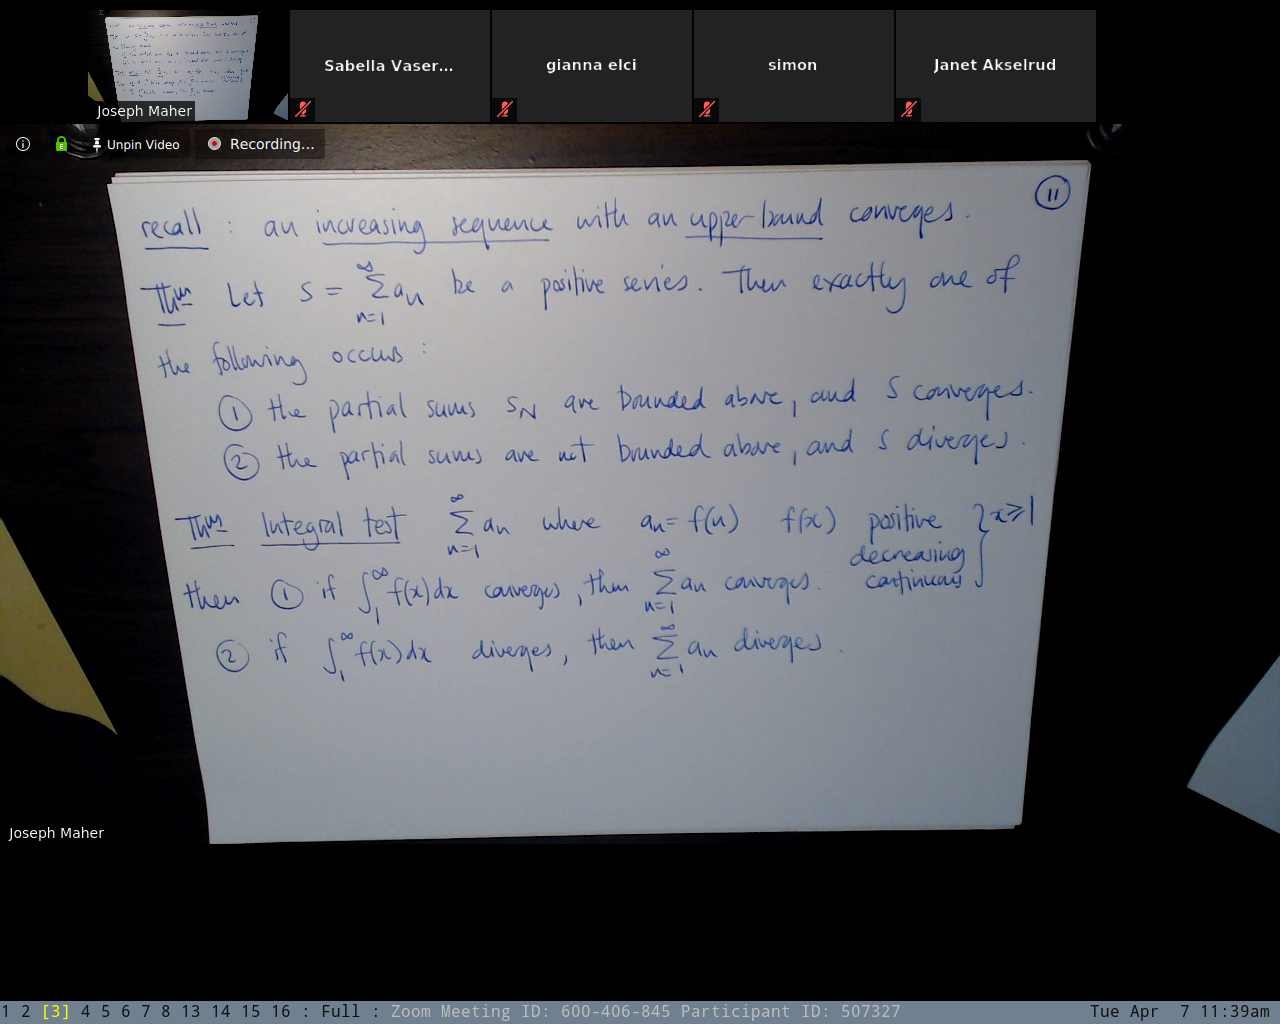 Joseph Maher
Sabella Vaser...
gianna elci
simon
Janet Akselrud
Unpin Video
Recording...
11
recall : an increasing sequence with an upper bound conveges.
Thm Let S = ∑_{n=1}^{∞} a_n be a positive series. Then exactly one of
the following occurs :
① the partial sums S_N are bounded above, and S converges.
② the partial sums are not bounded above, and S diverges.
Thm Integral test ∑_{n=1}^{∞} a_n where a_n = f(n) f(x) positive decreasing continuous } x ≥ 1
then ① if ∫_1^∞ f(x) dx converges, then ∑_{n=1}^{∞} a_n converges.
② if ∫_1^∞ f(x) dx diverges, then ∑_{n=1}^{∞} a_n diverges.
Joseph Maher
1 2 [3] 4 5 6 7 8 13 14 15 16 : Full : Zoom Meeting ID: 600-406-845 Participant ID: 507327 Tue Apr 7 11:39am